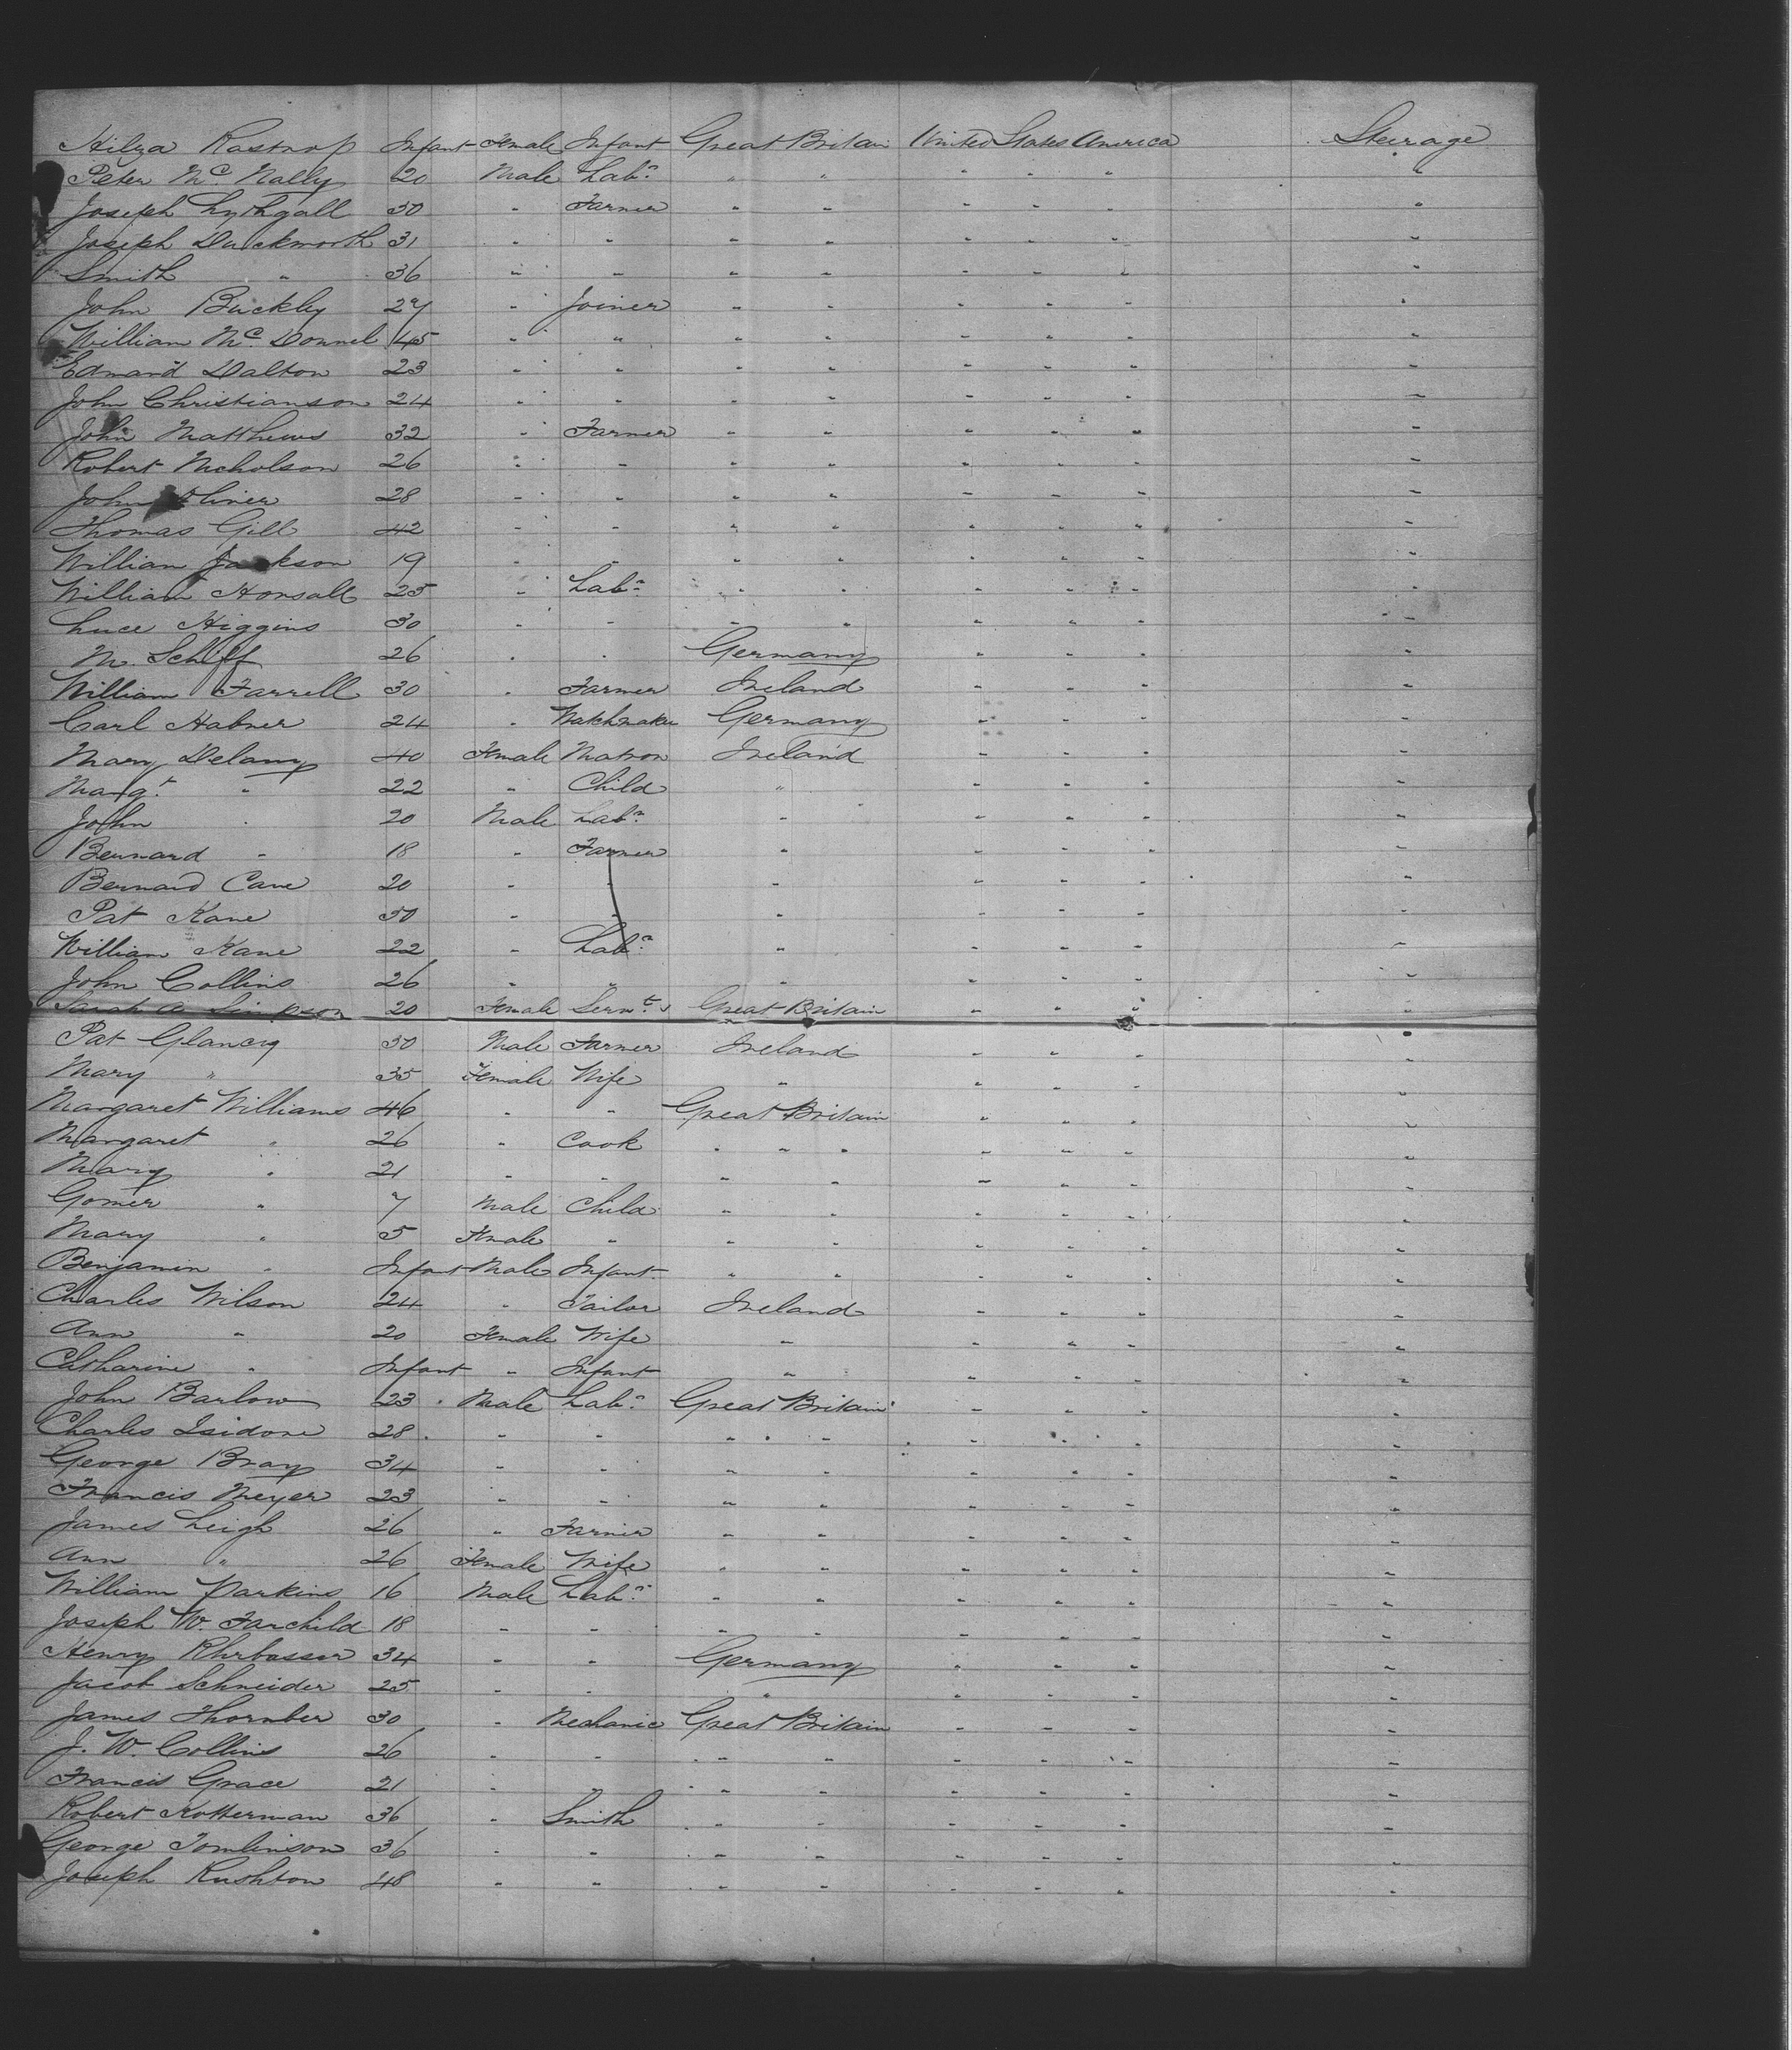 Hilga Rastrop Infant Female Infant Great Britain United States America Steerage
Peter Mc. Nally 20 Male Labr " " " " " "
Joseph Lythgall 30 " Farmer " " " " " "
Joseph Duckworth 31 " " " " " " " "
Smith " 36 " " " " " " " "
John Buckley 27 " Joiner " " " " " "
William Mc. Donnel 45 " " " " " " " "
Edward Dalton 23 " " " " " " " "
John Christianson 24 " " " " " " " "
John Matthews 32 " Farmer " " " " " "
Robert Nicholson 26 " " " " " " " "
John Oliver 28 " " " " " " " "
Thomas Gill 42 " " " " " " " "
William Jackson 19 " " " " " " " "
William Horsall 25 " Labr " " " " " "
Luce Higgins 30 " " " " " " " "
M. Schiff 26 " " Germany " " " "
William Farrell 30 " Farmer Ireland " " " "
Carl Habner 24 " Watchmaker Germany " " " "
Mary Delany 40 Female Matron Ireland " " " "
Margt " 22 " Child " " " " "
John " 20 Male Labr " " " " "
Bernard " 18 " Farmer " " " " "
Bernard Cane 20 " " " " " " "
Pat Kane 30 " " " " " " "
William Kane 22 " Labr " " " " "
John Collins 26 " " " " " " "
Sarah A Simpson 20 Female Servt Great Britain " " " "
Pat Glancy 30 Male Farmer Ireland " " " "
Mary " 35 Female Wife " " " " "
Margaret Williams 46 " " Great Britain " " " "
Margaret " 26 " Cook " " " " " "
Mary " 21 " " " " " " " "
Gomer " 7 Male Child " " " " " "
Mary " 5 Female " " " " " " "
Benjamin " Infant Male Infant " " " " " "
Charles Wilson 24 " Tailor Ireland " " " "
Ann " 20 Female Wife " " " " "
Catharine " Infant " Infant " " " " "
John Barlow 23 Male Labr Great Britain " " " "
Charles Isidore 28 " " " " " " " "
George Bray 34 " " " " " " " "
Francis Meyer 23 " " " " " " " "
James Leigh 26 " Farmer " " " " " "
Ann " 26 Female Wife " " " " " "
William Parkins 16 Male Labr " " " " " "
Joseph W. Farchild 18 " " " " " " " "
Henry 34 " " Germany " " " "
Jacob Schneider 25 " " " " " " "
James Thornber 30 " Mechanic Great Britain " " " "
J. W. Collins 26 " " " " " " " "
Francis Grace 21 " " " " " " " "
Robert Kotterman 36 " Smith " " " " " "
George Tomlinson 36 " " " " " " " "
Joseph Rushton 48 " " " " " " " "